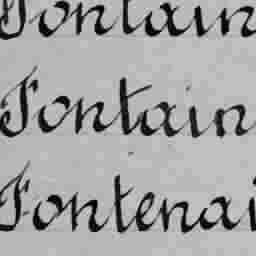 Fontain
Fontain
Fontenai